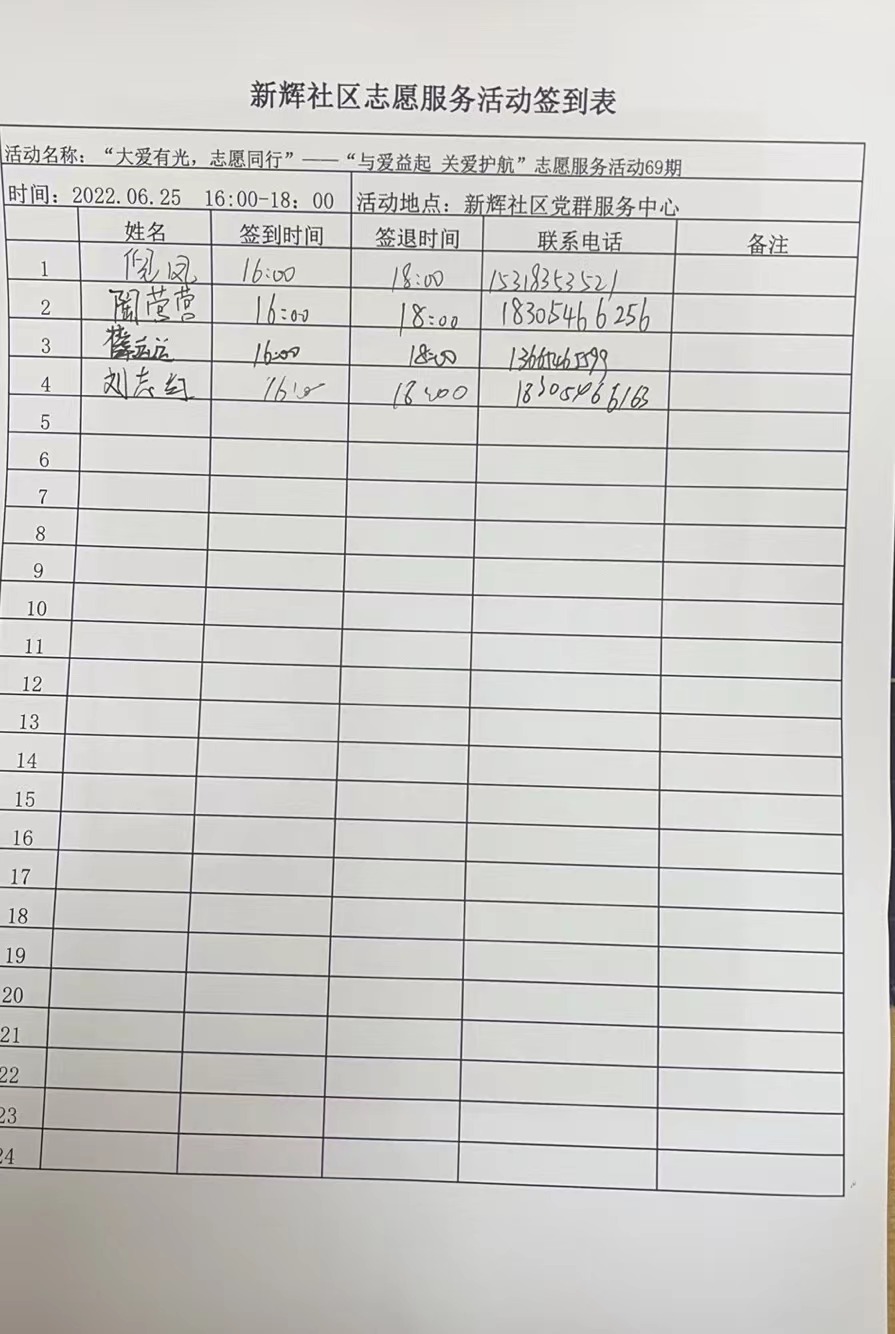 新辉社区志愿服务活动签到表
活动名称：“大爱有光，志愿同行”——“与爱益起 关爱护航”志愿服务活动69期
时间：2022.06.25 16:00-18：00 活动地点：新辉社区党群服务中心
姓名 签到时间 签退时间 联系电话 备注
1 倪凤 16:00 18:00 15318353521
2 陶莹莹 16:00 18:00 18305466256
3 16:00 18:00
4 刘志红 16:00 18:00 18305466163
5
6
7
8
9
10
11
12
13
14
15
16
17
18
19
20
21
22
23
24